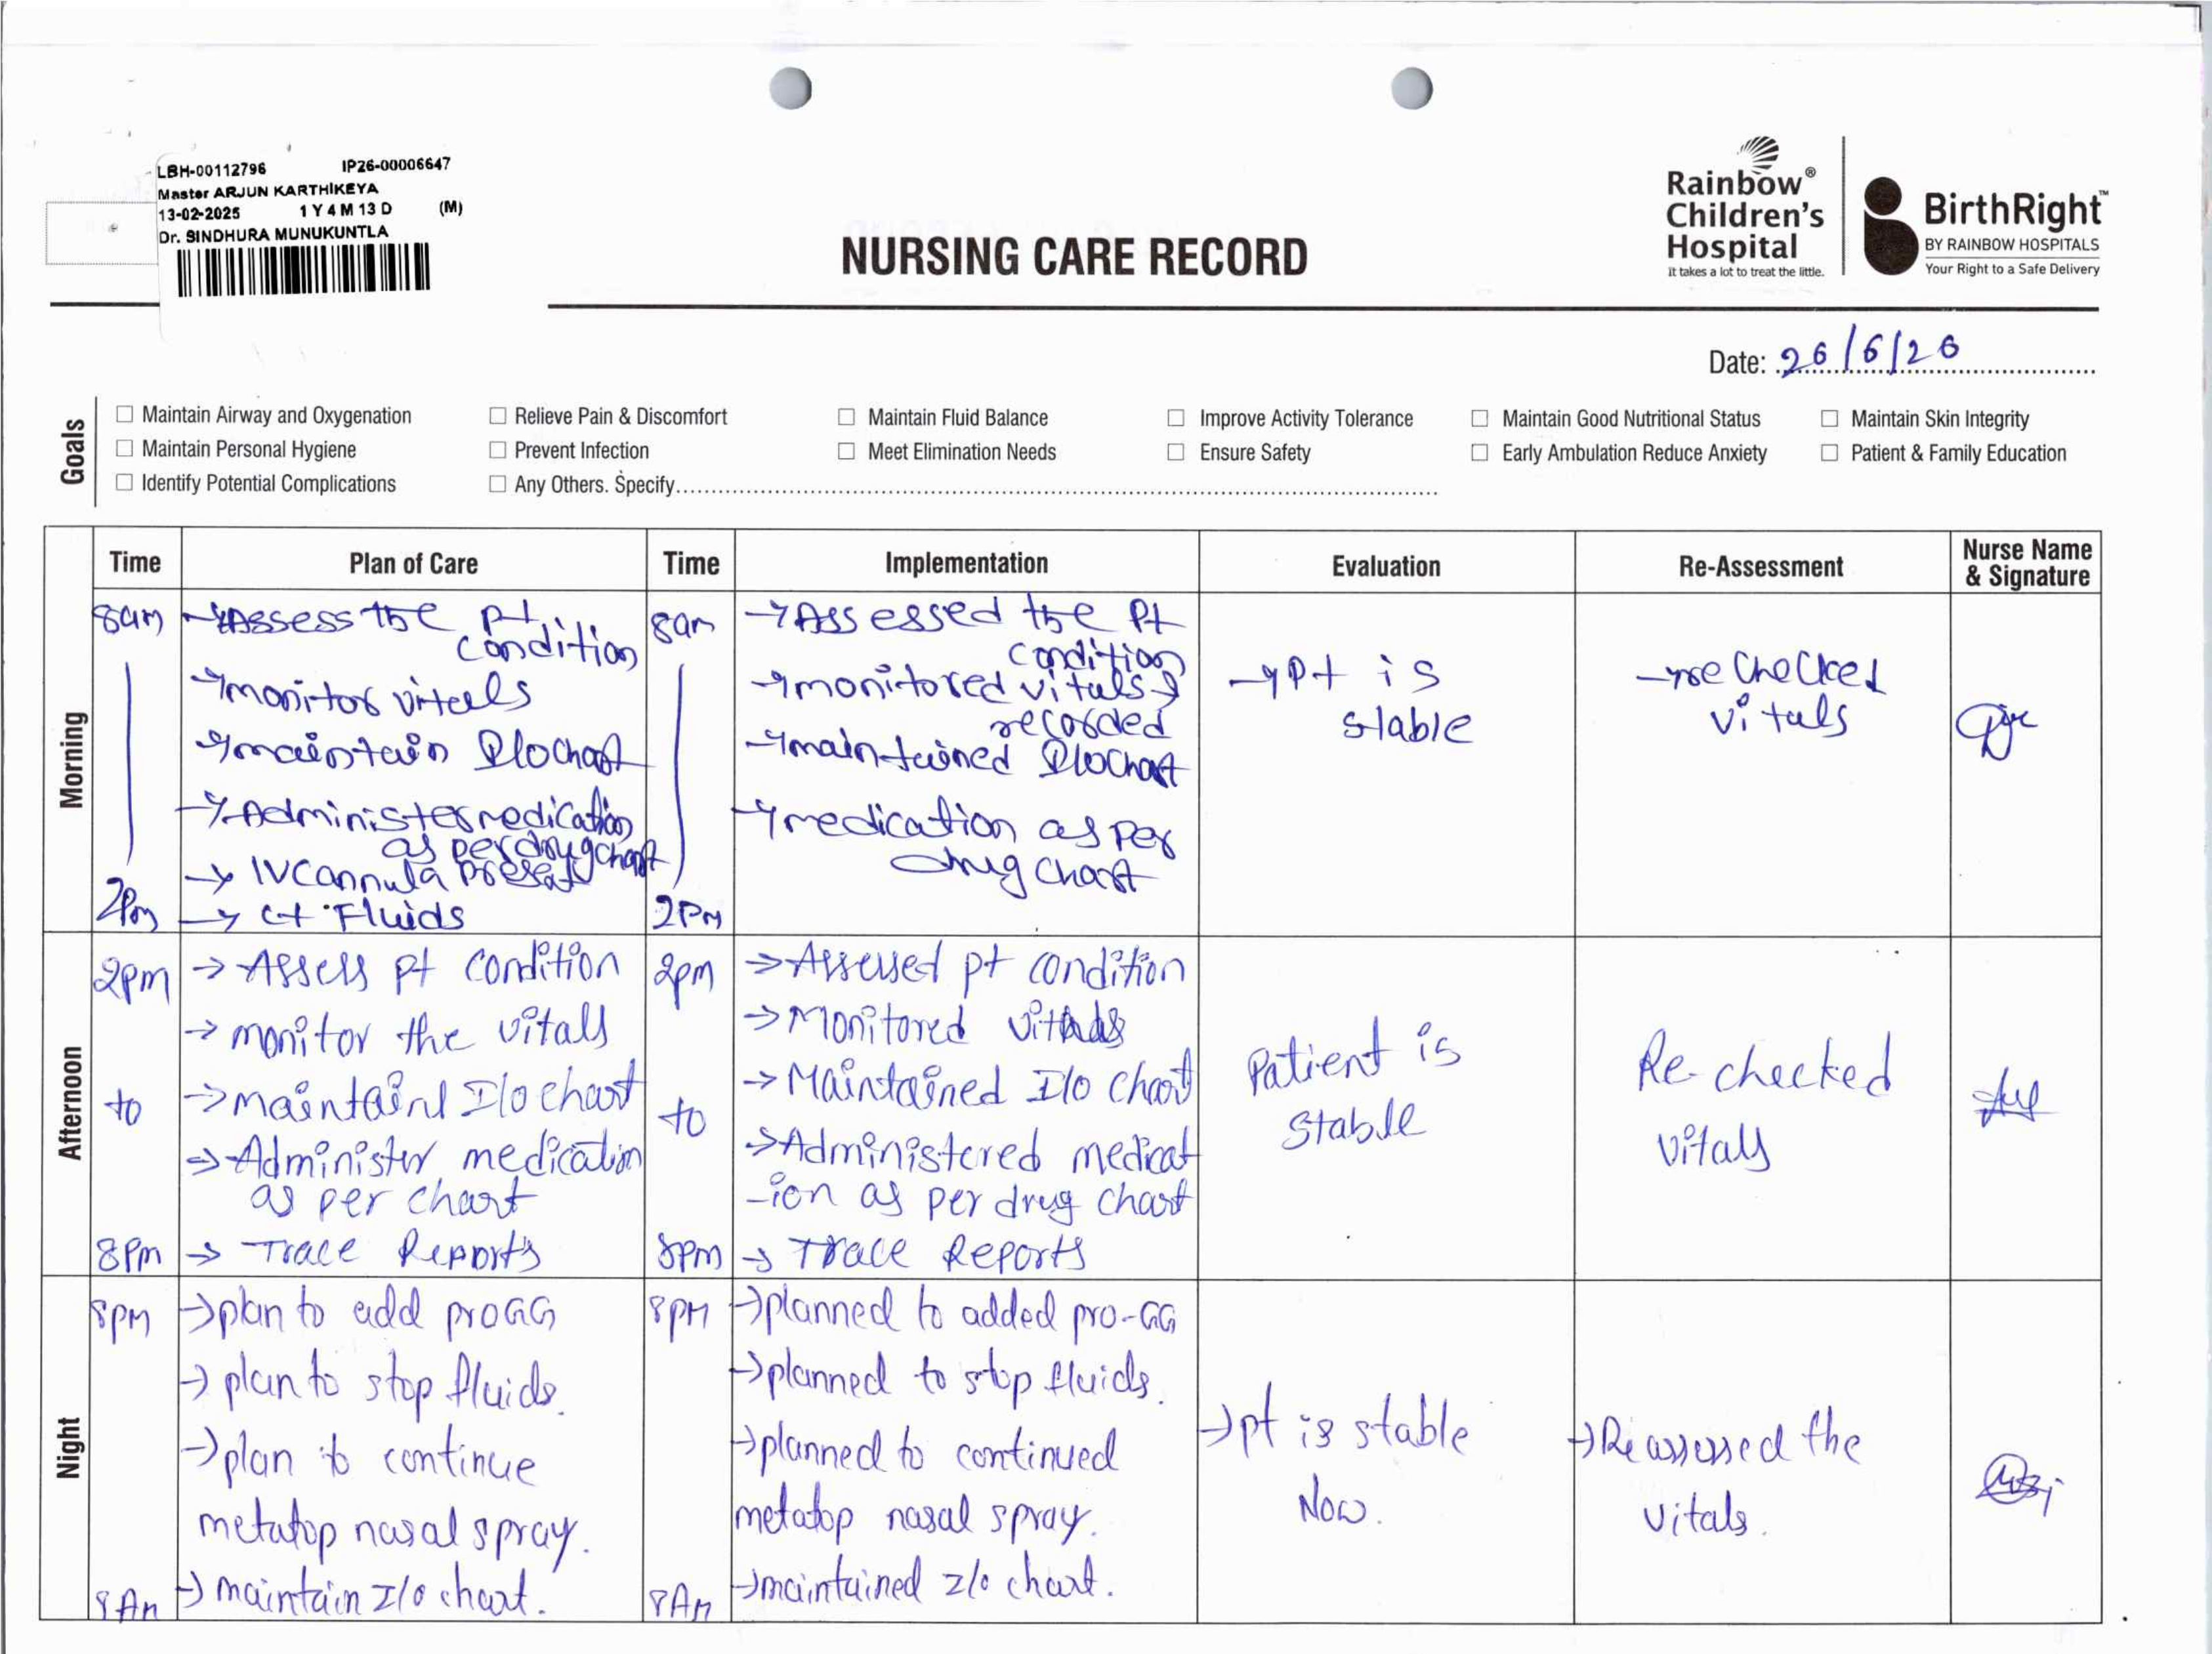 LBH-00112796 IP26-00006647
Master ARJUN KARTHIKEYA
13-02-2025 1 Y 4 M 13 D (M)
Dr. SINDHURA MUNUKUNTLA
NURSING CARE RECORD
Rainbow®
Children's
Hospital
It takes a lot to treat the little.
BirthRight™
BY RAINBOW HOSPITALS
Your Right to a Safe Delivery
Date: 26/6/26
Goals
☐ Maintain Airway and Oxygenation ☐ Relieve Pain & Discomfort ☐ Maintain Fluid Balance ☐ Improve Activity Tolerance ☐ Maintain Good Nutritional Status ☐ Maintain Skin Integrity
☐ Maintain Personal Hygiene ☐ Prevent Infection ☐ Meet Elimination Needs ☐ Ensure Safety ☐ Early Ambulation Reduce Anxiety ☐ Patient & Family Education
☐ Identify Potential Complications ☐ Any Others. Specify
Time Plan of Care Time Implementation Evaluation Re-Assessment Nurse Name & Signature
Morning
8am
2Pm
→ Assess the pt
condition
→ monitor vitals
→ maintain I/o chart
→ Administer medication
as per drug chart
→ IV Cannula Present
→ ct Fluids
8am
2PM
→ Assessed the Pt
condition
→ monitored vitals &
recorded
→ maintained I/o chart
→ medication as per
drug chart
→ Pt is
stable
→ re checked
vitals
Afternoon
2pm
to
8pm
→ Assess pt condition
→ monitor the vitals
→ maintaint I/o chart
→ Administer medication
as per chart
→ Trace Reports
2pm
to
8pm
→ Assessed pt condition
→ Monitored vitals
→ Maintained I/o chart
→ Administered medicat
-ion as per drug chart
→ Trace Reports
Patient is
Stable
Re-checked
vitals
Night
8pm
8Am
→ plan to add proGG
→ plan to stop fluids.
→ plan to continue
metatop nasal spray.
→ maintain I/o chart.
8pm
8Am
→ planned to added pro-GG
→ planned to stop fluids.
→ planned to continued
metatop nasal spray.
→ maintained I/o chart.
→ pt is stable
Now.
→ Reassessed the
vitals.